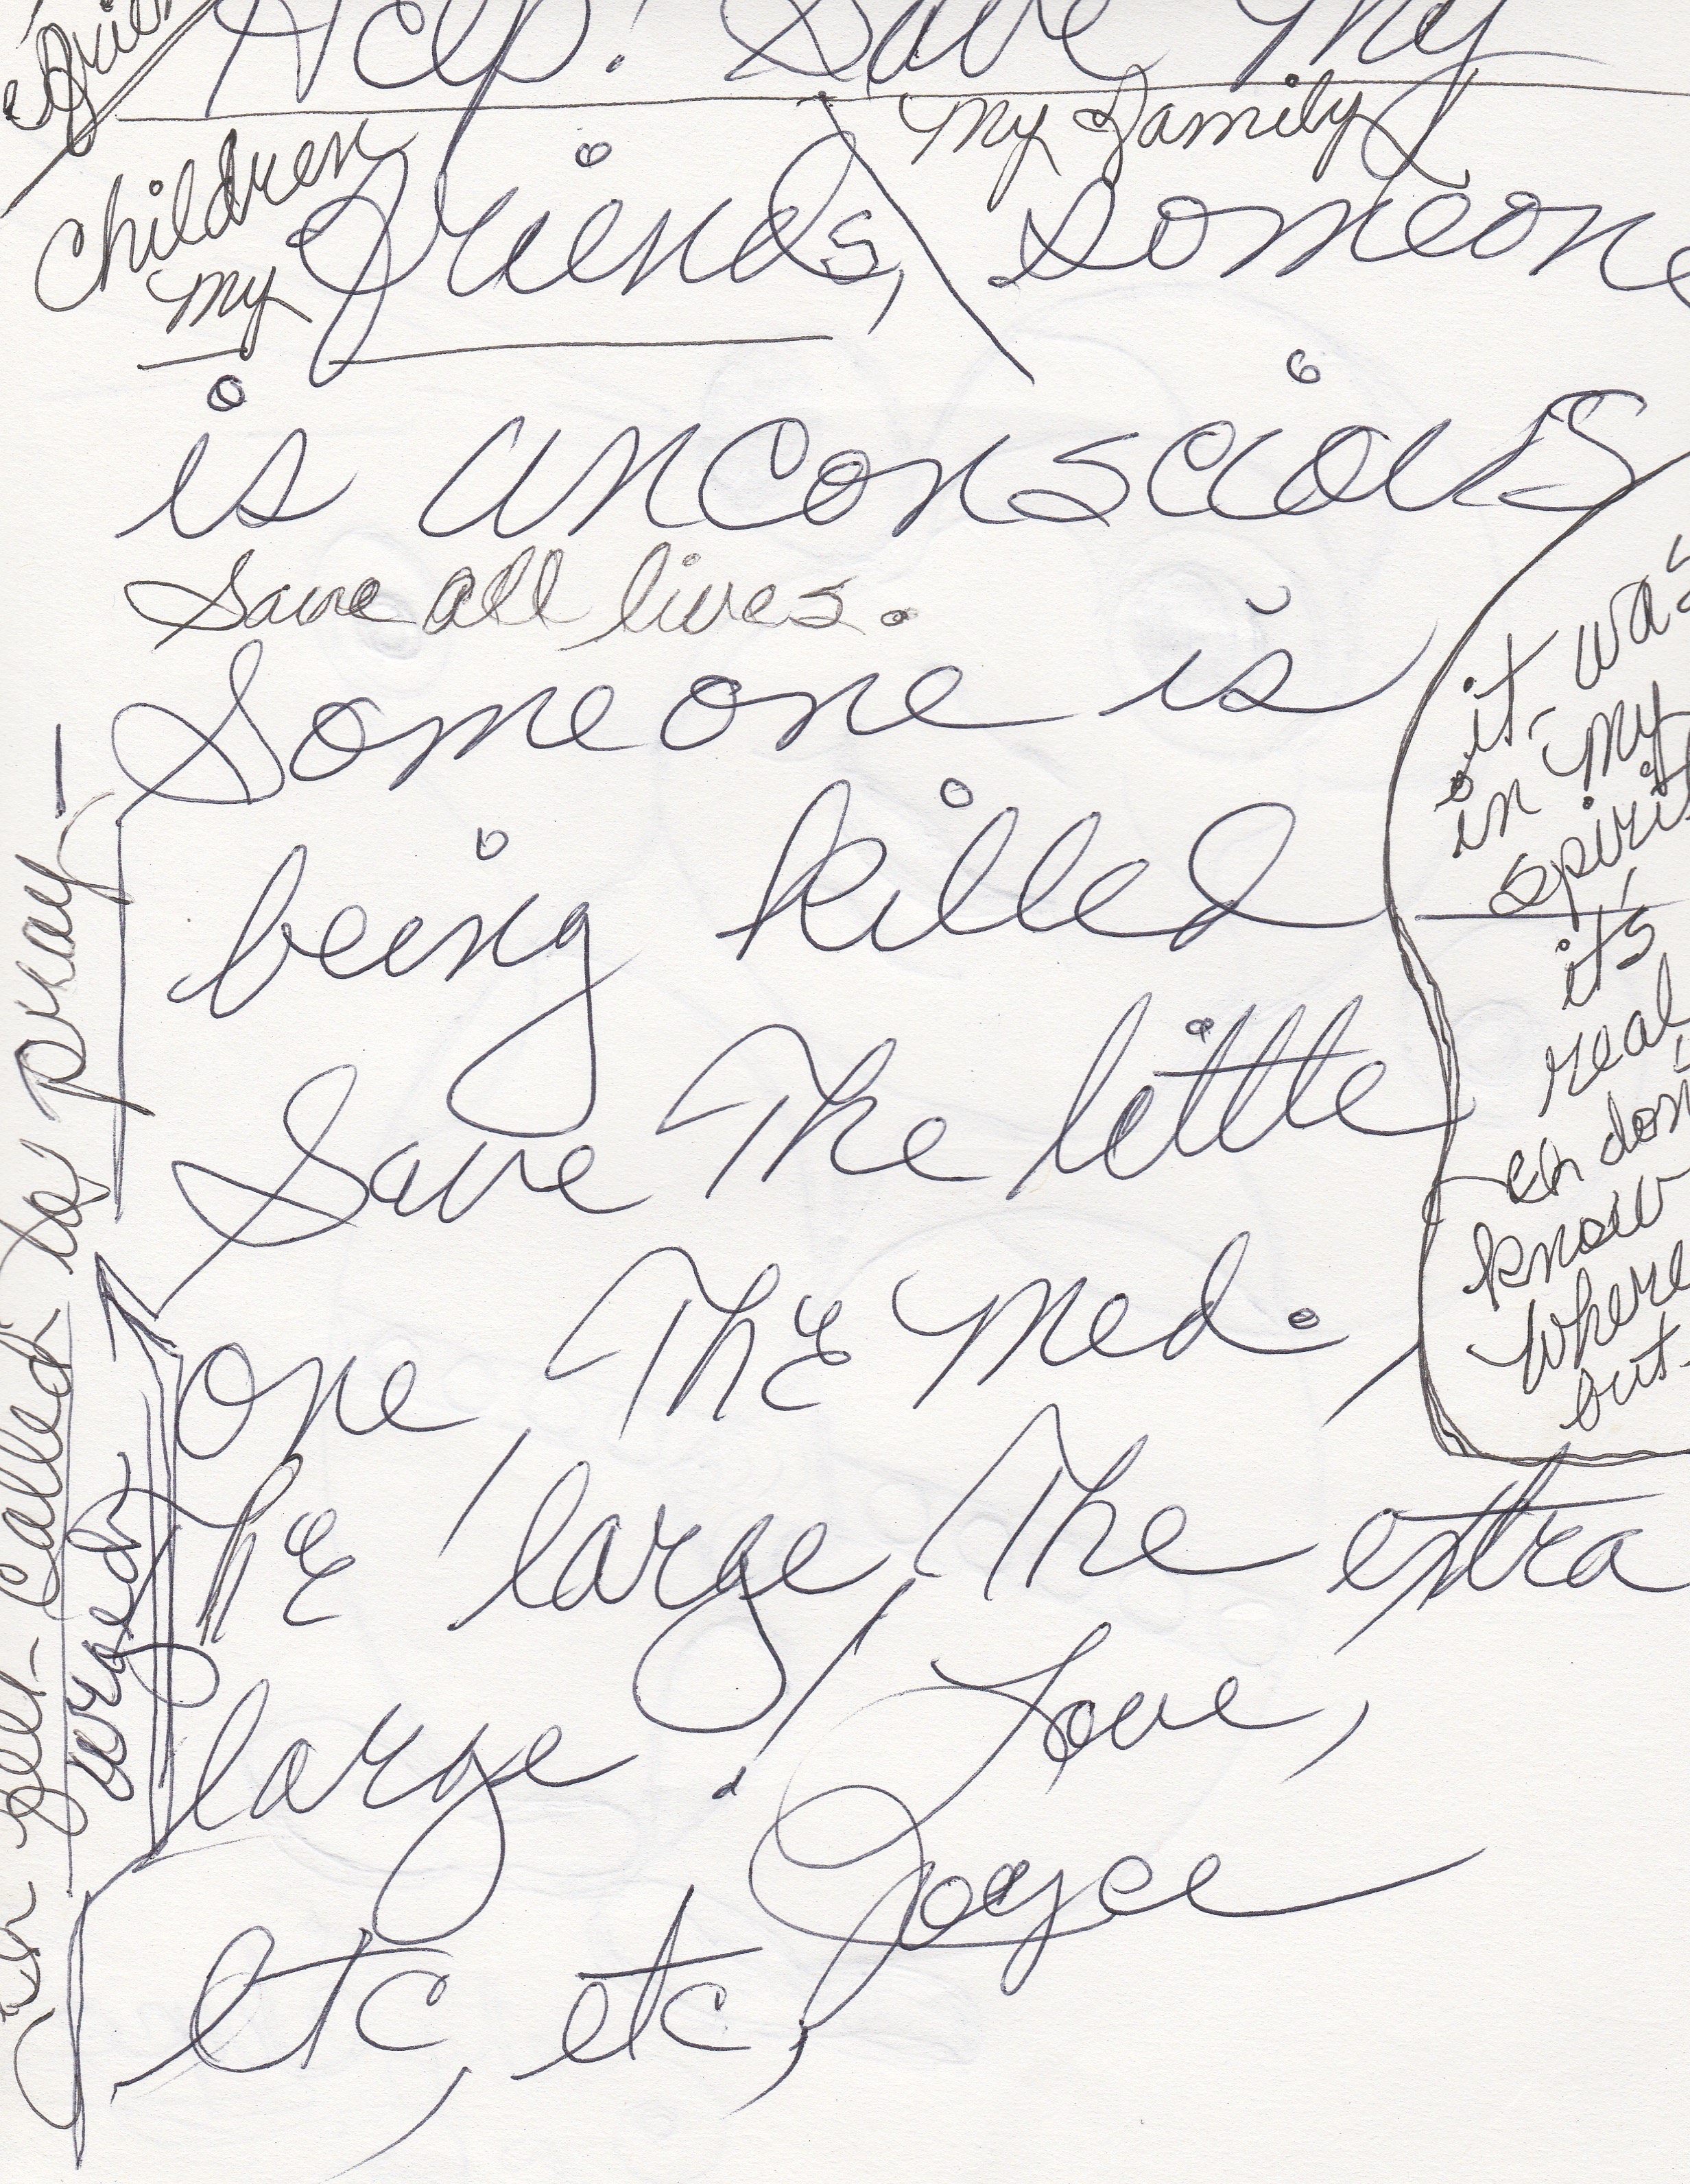 Help! Save My
my Family
Children
my
Friends, Someone
is unconscious
Save all lives.
Someone is
being killed
Save The little
one, The Med.
The large, The extra
large!
etc, etc,
Love,
Joyce
it was
it
in my
spirit
it's
real
don't
know
where
but
felt called to pray
urged